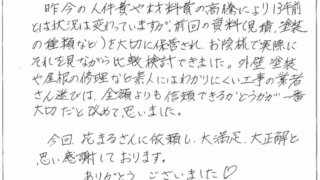 昨今の人件費や材料費の高騰により13年前
とは状況は変わっていますが、前回の資料(見積、塗装
の種類など)を大切に保管され、お陰様で実際に
それを見ながら比較検討できました。外壁塗装
や屋根の修理など素人にはわかりにくい工事の業者
さん選びは、金額よりも信頼できるかどうかが一番
大切だと改めて思いました。
今回、花まるさんに依頼し、大満足、大正解と
思い感謝しております。
ありがとうございました♡